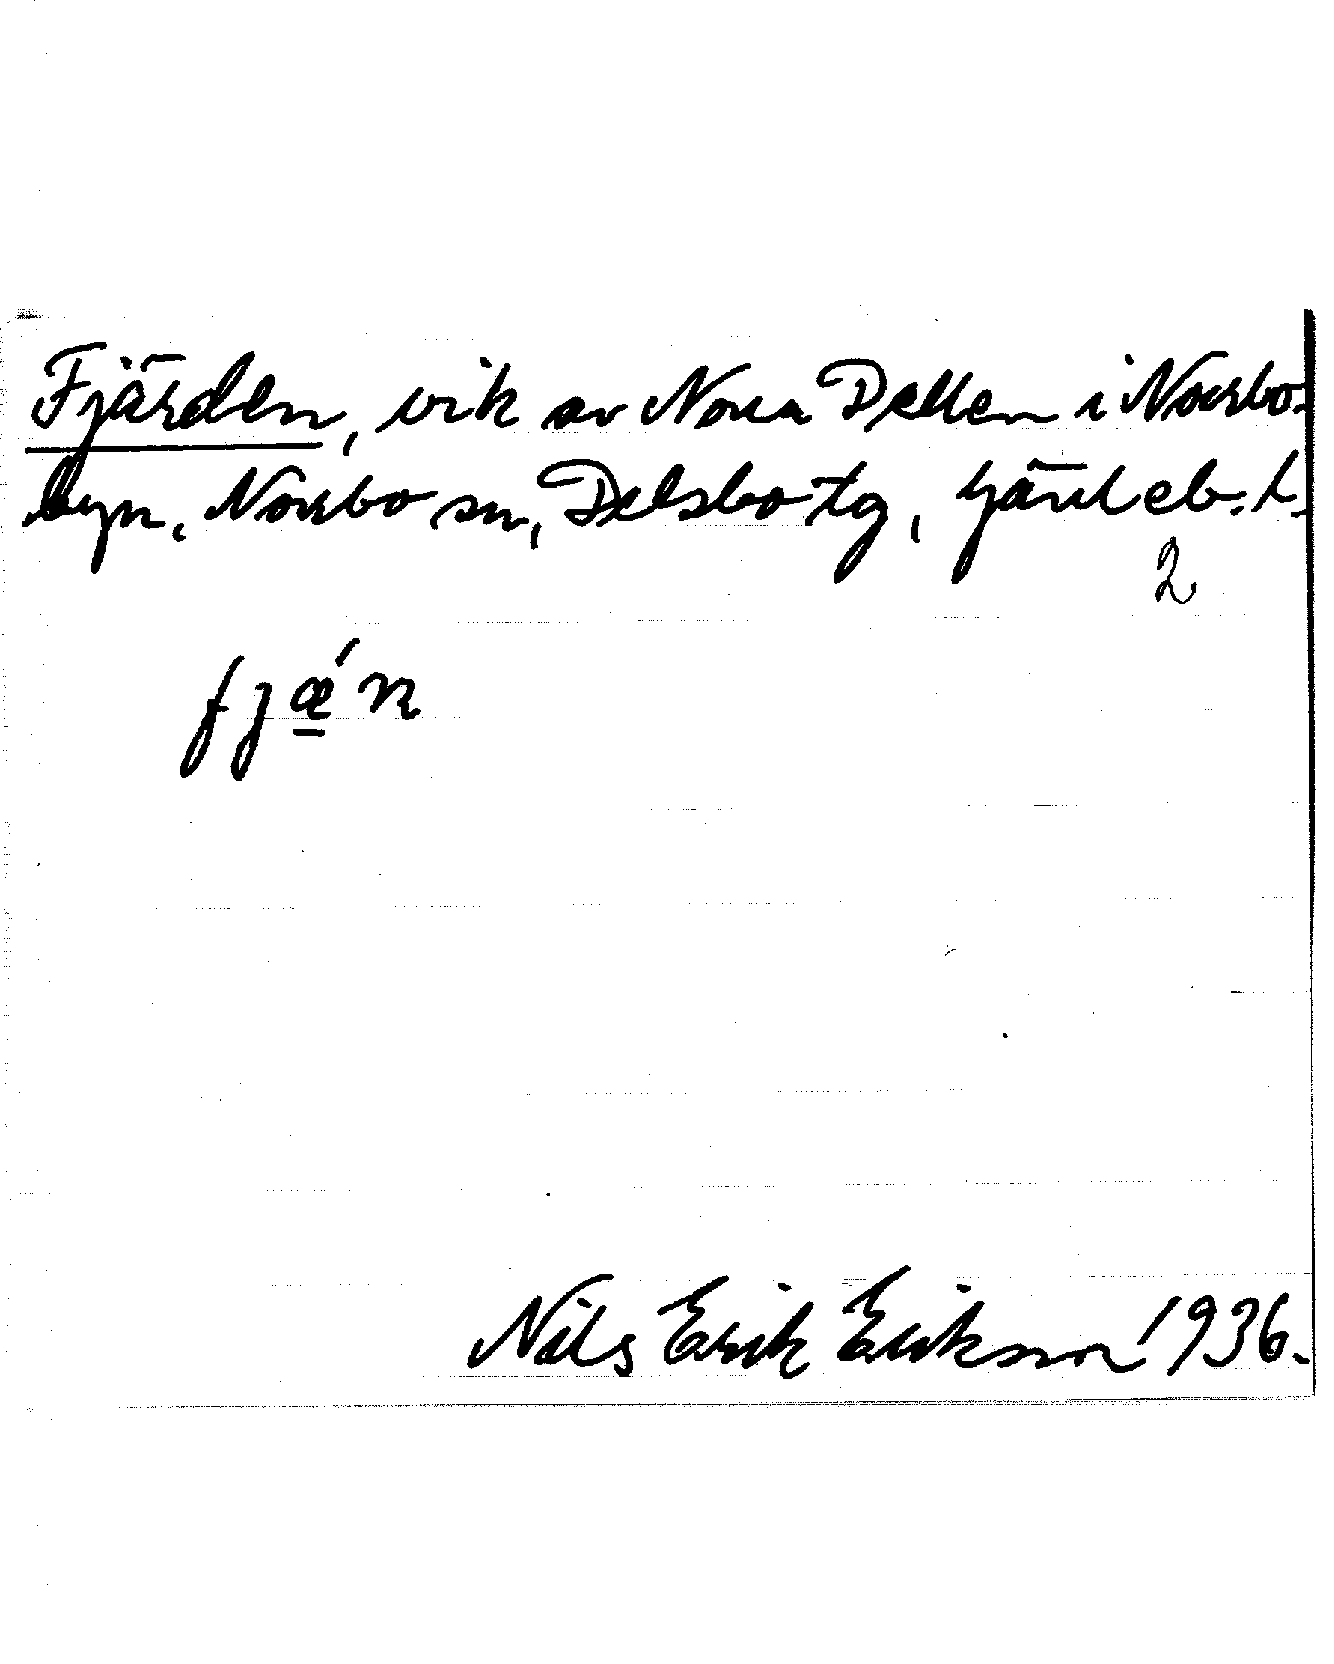 Fjärden, vik av Norra Dellen i Norrbo-
byn, Norrbo sn, Delsbo tg, Gävleb. l.
2
fjǽn
Nils Erik Eriksson 1936.